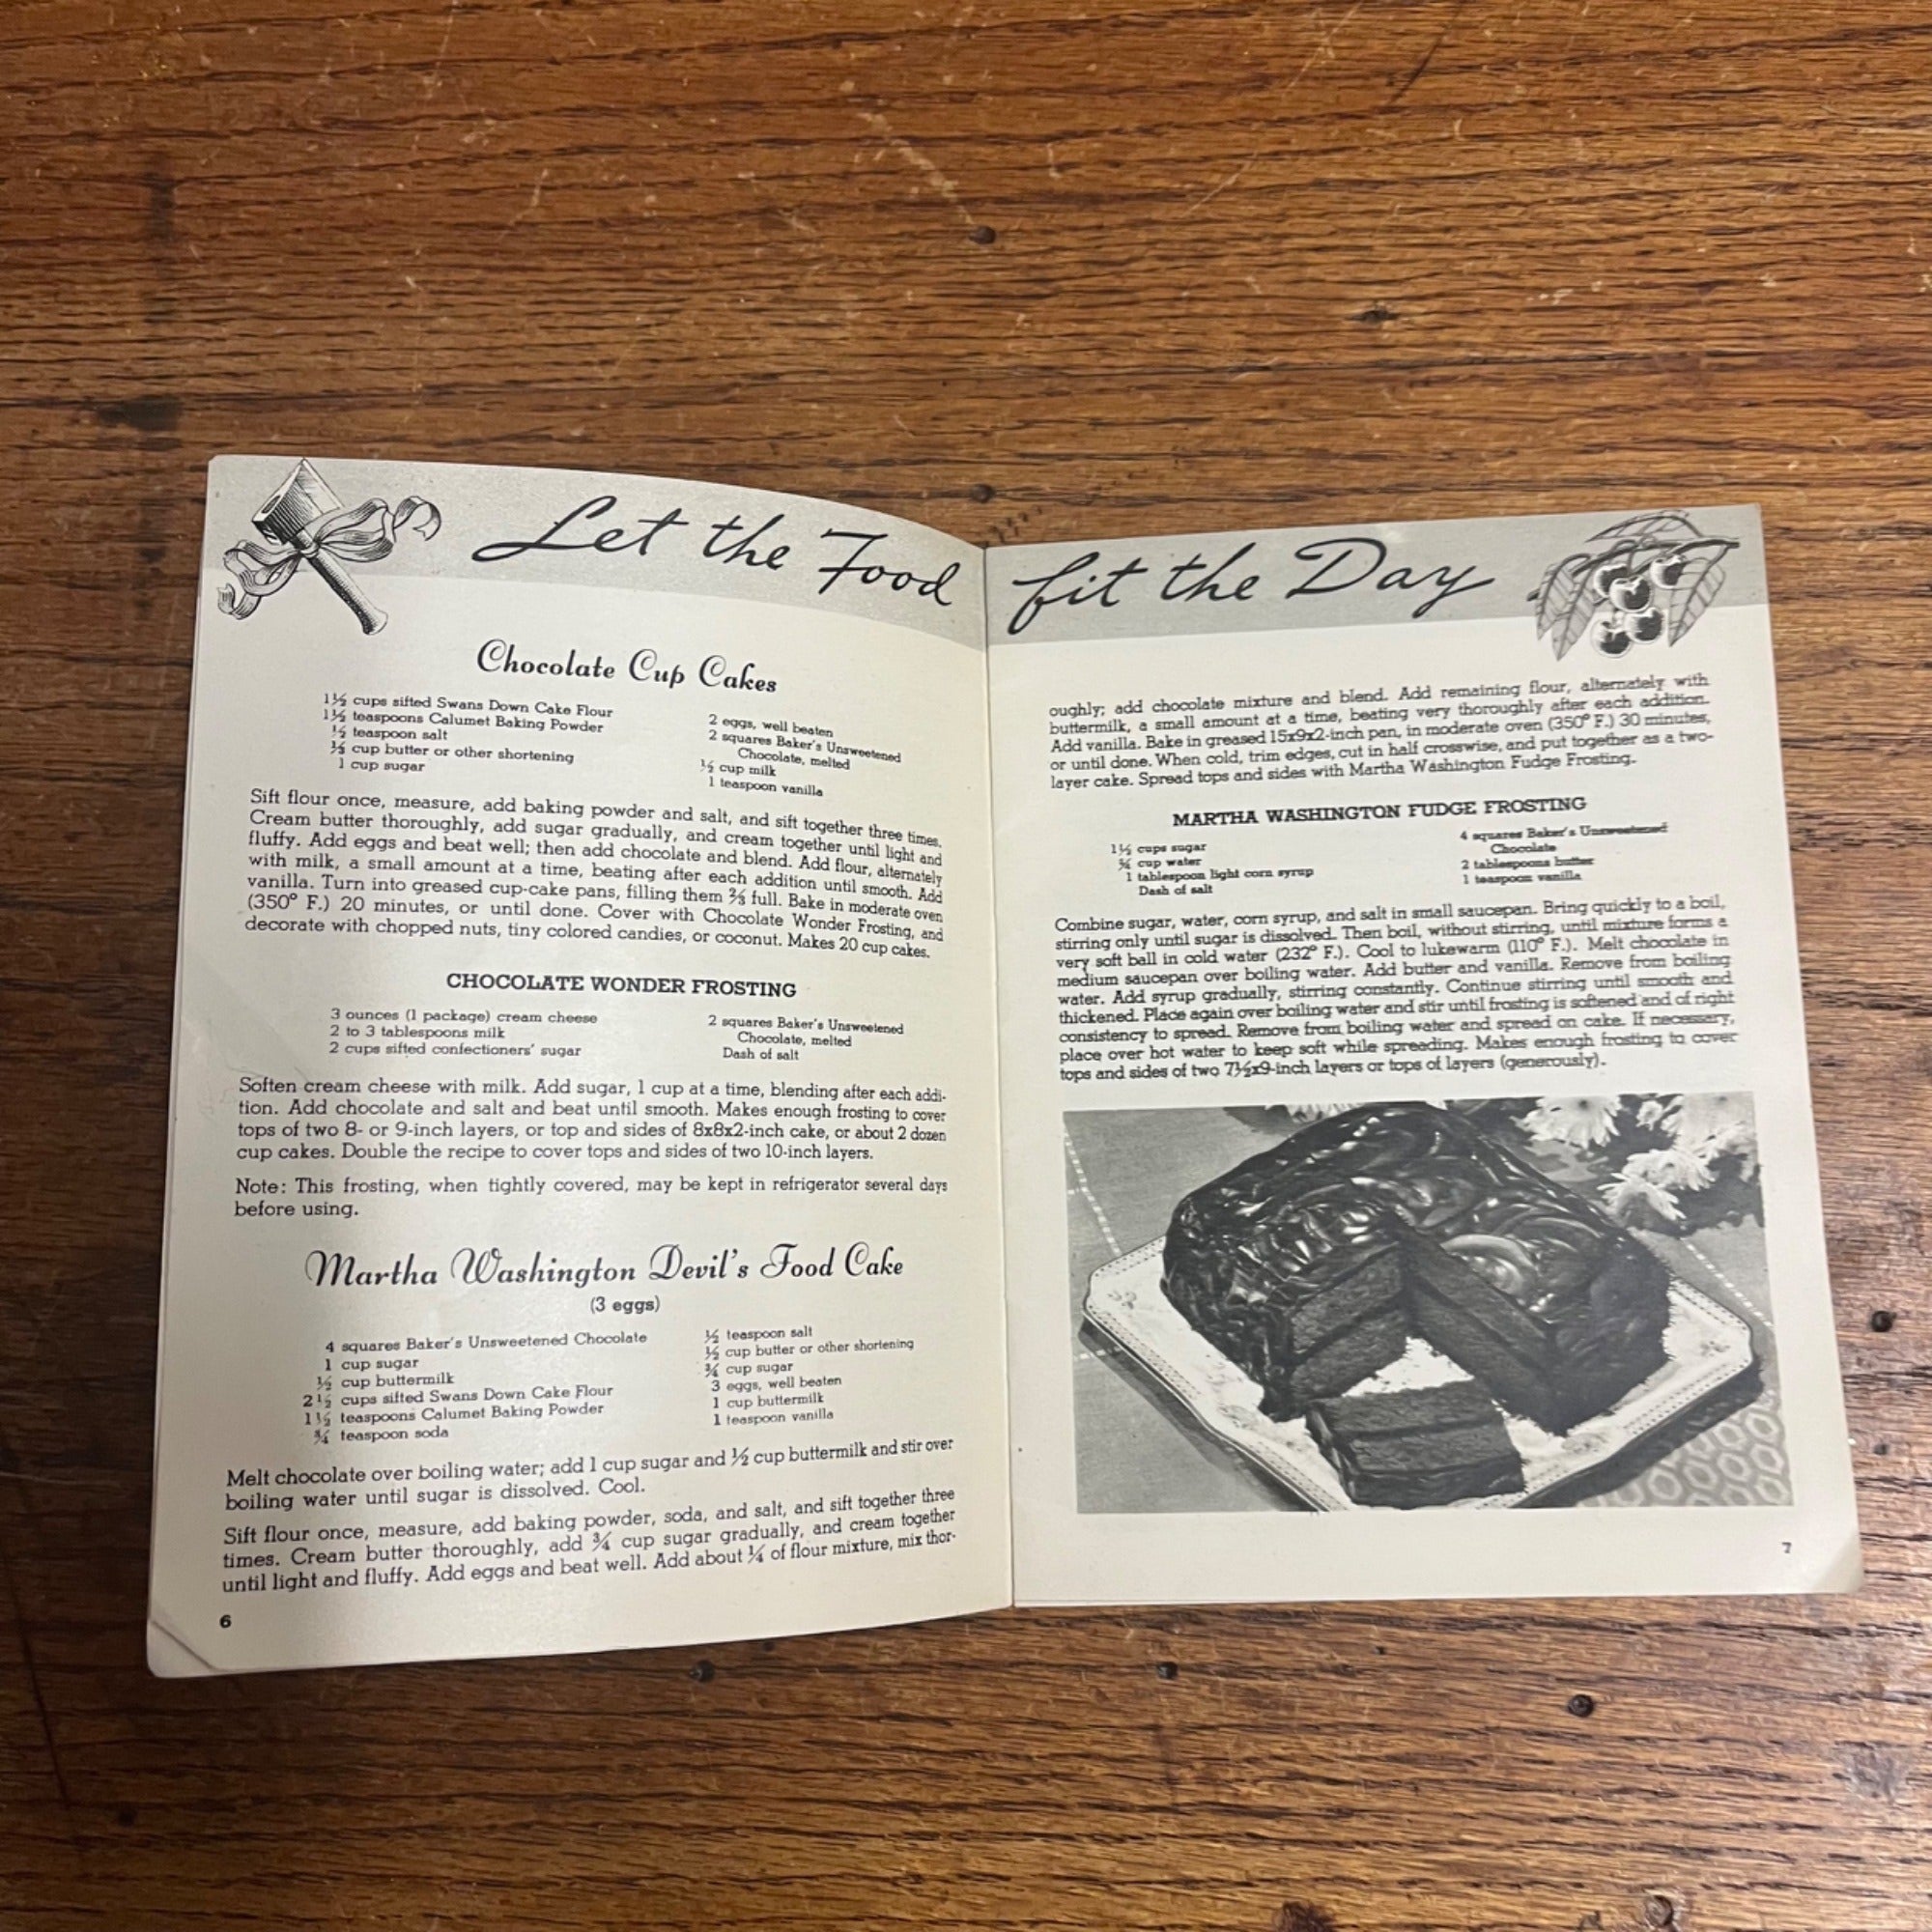 Let the Food fit the Day
Chocolate Cup Cakes
1½ cups sifted Swans Down Cake Flour
1½ teaspoons Calumet Baking Powder
½ teaspoon salt
⅓ cup butter or other shortening
1 cup sugar
2 eggs, well beaten
2 squares Baker's Unsweetened
Chocolate, melted
½ cup milk
1 teaspoon vanilla
Sift flour once, measure, add baking powder and salt, and sift together three times.
Cream butter thoroughly, add sugar gradually, and cream together until light and
fluffy. Add eggs and beat well; then add chocolate and blend. Add flour, alternately
with milk, a small amount at a time, beating after each addition until smooth. Add
vanilla. Turn into greased cup-cake pans, filling them ⅔ full. Bake in moderate oven
(350° F.) 20 minutes, or until done. Cover with Chocolate Wonder Frosting, and
decorate with chopped nuts, tiny colored candies, or coconut. Makes 20 cup cakes.
CHOCOLATE WONDER FROSTING
3 ounces (1 package) cream cheese
2 to 3 tablespoons milk
2 cups sifted confectioners' sugar
2 squares Baker's Unsweetened
Chocolate, melted
Dash of salt
Soften cream cheese with milk. Add sugar, 1 cup at a time, blending after each addi-
tion. Add chocolate and salt and beat until smooth. Makes enough frosting to cover
tops of two 8- or 9-inch layers, or top and sides of 8x8x2-inch cake, or about 2 dozen
cup cakes. Double the recipe to cover tops and sides of two 10-inch layers.
Note: This frosting, when tightly covered, may be kept in refrigerator several days
before using.
Martha Washington Devil's Food Cake
(3 eggs)
4 squares Baker's Unsweetened Chocolate
1 cup sugar
½ cup buttermilk
2½ cups sifted Swans Down Cake Flour
1½ teaspoons Calumet Baking Powder
¾ teaspoon soda
½ teaspoon salt
½ cup butter or other shortening
¾ cup sugar
3 eggs, well beaten
1 cup buttermilk
1 teaspoon vanilla
Melt chocolate over boiling water; add 1 cup sugar and ½ cup buttermilk and stir over
boiling water until sugar is dissolved. Cool.
Sift flour once, measure, add baking powder, soda, and salt, and sift together three
times. Cream butter thoroughly, add ¾ cup sugar gradually, and cream together
until light and fluffy. Add eggs and beat well. Add about ¼ of flour mixture, mix thor-
6
oughly; add chocolate mixture and blend. Add remaining flour, alternately with
buttermilk, a small amount at a time, beating very thoroughly after each addition.
Add vanilla. Bake in greased 15x9x2-inch pan, in moderate oven (350° F.) 30 minutes,
or until done. When cold, trim edges, cut in half crosswise, and put together as a two-
layer cake. Spread tops and sides with Martha Washington Fudge Frosting.
MARTHA WASHINGTON FUDGE FROSTING
1½ cups sugar
¾ cup water
1 tablespoon light corn syrup
Dash of salt
4 squares Baker's Unsweetened
Chocolate
2 tablespoons butter
1 teaspoon vanilla
Combine sugar, water, corn syrup, and salt in small saucepan. Bring quickly to a boil,
stirring only until sugar is dissolved. Then boil, without stirring, until mixture forms a
very soft ball in cold water (232° F.). Cool to lukewarm (110° F.). Melt chocolate in
medium saucepan over boiling water. Add butter and vanilla. Remove from boiling
water. Add syrup gradually, stirring constantly. Continue stirring until smooth and
thickened. Place again over boiling water and stir until frosting is softened and of right
consistency to spread. Remove from boiling water and spread on cake. If necessary,
place over hot water to keep soft while spreading. Makes enough frosting to cover
tops and sides of two 7½x9-inch layers or tops of layers (generously).
7